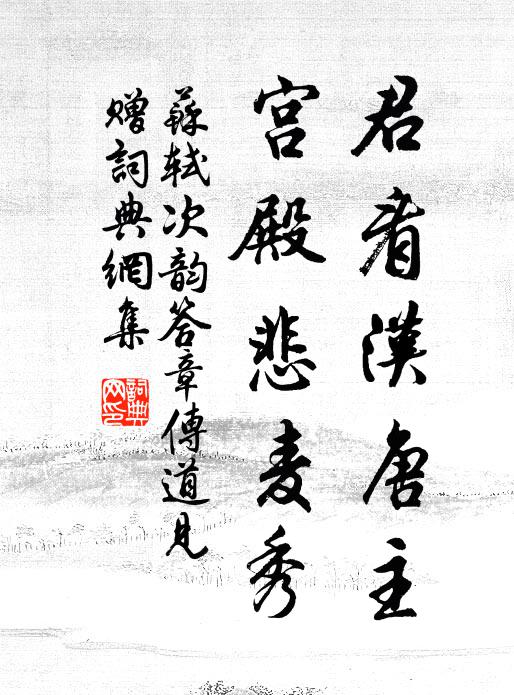 君看漢唐主
宮殿悲麦秀
蘇軾次韵答章傳道見
贈詞典網集
詞典
网印